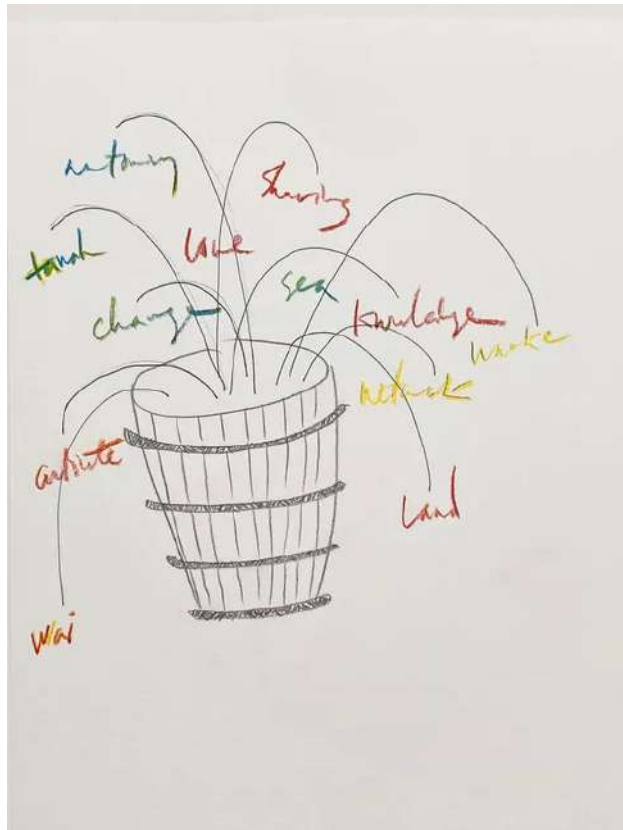 autonomy
Sharing
tanah
love
sea
change
knowledge
network
land
wai